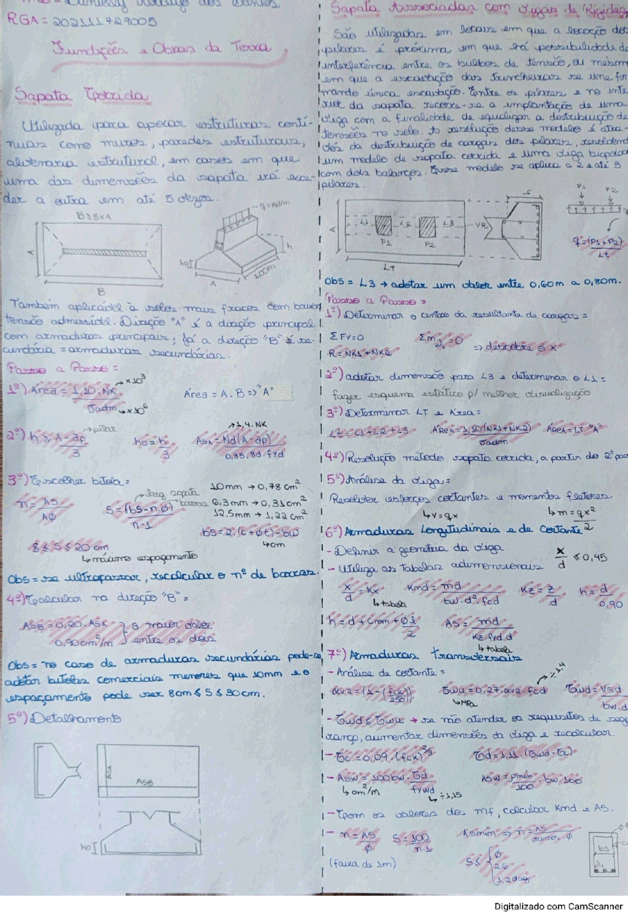 RGA = 202111429005
Fundações e Obras da Terra
Sapata Corrida
Utilizada para apoiar estruturas contí-
nuas como muros, paredes estruturais,
alvenaria estrutural, em casos em que
uma das dimensões da sapata irá exce-
der a outra em até 5 vezes.
B ≥ 5xA
A
B
h0
h
A
100cm
Também aplicável à solos mais fracos com baixa
tensão admissível. Direção "A" é a direção principal
com armaduras principais; já a direção "B" é se-
cundária = armaduras secundárias.
Passo a Passo =
1º) Área = 1,10.NK x10³
σadm x10⁶
Área = A.B => "A"
2º) h ≥ A-ap → pilar
3
h0 = h
3
ASA = Nd(A-ap) → 1,4.NK
0,85.8d.fyd
3º) Escolher bitola =
10mm → 0,78cm²
6,3mm → 0,31cm²
12,5mm → 1,22cm²
n = AS
Aϕ
S = (bs-nϕ)
n-1
8 ≤ S ≤ 20 cm
↳ máximo espaçamento
Obs = se ultrapassar, recalcular o nº de barras.
4º) Calcular na direção "B" =
ASB = 0,20.ASA
0,90cm²/m } o maior valor
entre os dois
Obs = no caso de armaduras secundárias pode-se
adotar bitolas comerciais menores que 10mm e o
espaçamento pode ser 8cm ≤ S ≤ 30cm.
5º) Detalhamento
ASA
ASB
h0
Sapata Associadas com Vigas de Rigidez
São utilizadas em locais em que a locação dos
pilares é próxima em que há possibilidade de
interferência entre os bulbos de tensão, ou mesmo
em que a escavação das trincheiras se uma for-
mando única escavação. Entre os pilares e no inte-
rior da sapata recorre-se a implantação de uma
viga com a finalidade de equalizar a distribuição de
tensões no solo. A resolução desse modelo é atra-
vés da distribuição de cargas dos pilares, resultando
um modelo de sapata corrida e uma viga biapoiada
com dois balanços. Esse modelo se aplica a 2 e até 3
pilares.
A
L1 L2 L3
P1 P2
VR
LT
P1 P2
q = (P1+P2)
LT
Obs = L3 → adotar um valor entre 0,60m a 0,80m.
Passo a Passo =
1º) Determinar o centro da resultante de cargas =
ΣFy=0
R = NK1+NK2
=> descobre o x
2º) adotar dimensão para L3 e determinar o L1 =
fazer esquema estático p/ melhor visualização
3º) Determinar LT e Área =
LT = L1+L2+L3
Área = 1,10(NK1+NK2)
σadm
Área = LT.A
4º) Resolução método sapata corrida, a partir do 2º passo
5º) Análise da viga =
Resolver esforços cortantes e momentos fletores.
↳ v=qx
↳ m = qx²
2
6º) Armaduras Longitudinais e de Cortante =
- Definir a geometria da viga
- Utiliza as tabelas adimensionais
x
d ≤ 0,45
x = Kx
d
↳ tabela
Kmd = md
bw.d².fcd
Kz = z
d
h = d
0,90
h = d + Cnom + ϕl
2
AS = md
Kz.fyd.d
↳ tabela
7º) Armaduras Transversais
- Análise de cortante =
αv2 = (1-(fck))
250
τwu = 0,27.αv2.fcd ÷1,4
↳ MPa
τwd = Vsd
bw.d
- τwd ≤ τwu → se não atender os requisitos de segu-
rança, aumentar dimensões da viga e recalcular.
- τc = 0,09.(fck)^2/3
τd = 1,11.(τwd-τc)
- ASw = 100bw.τd
fywd
↳ cm²/m
↳ ÷1,15
ASw = ρmin.bw.100
100
- Com os valores dos mf, calcular Kmd e AS.
- n = AS
ϕ
S = 100
n-1
(faixa de 1m)
bs